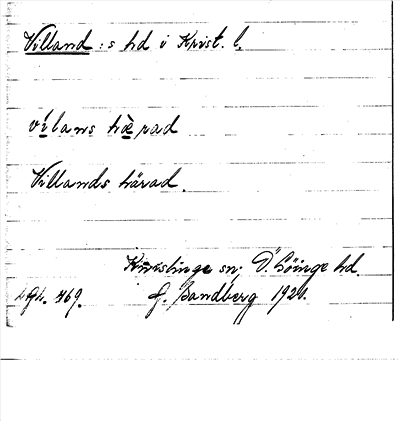 Villand : s hd i Krist. l.
vílans hæ̀rad
Villands härad.
Knislinge sn; Ö. Göinge hd.
469. J. Sandberg 1920.